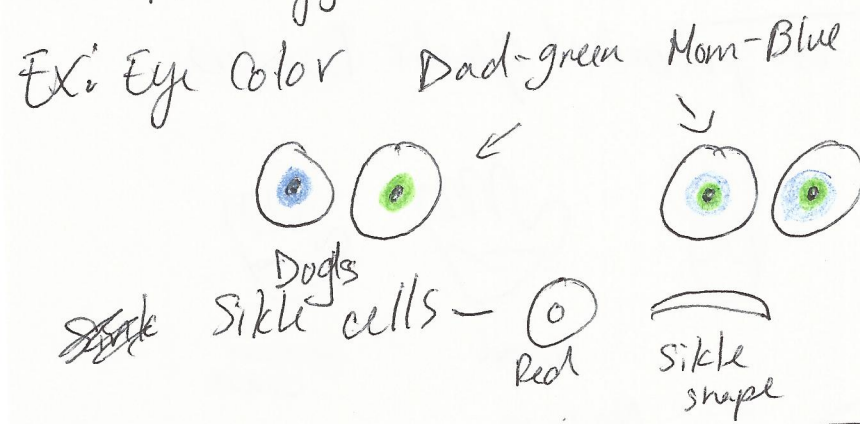 Ex: Eye Color Dad-green Mom-Blue
Dogs
Sikle cells-
Red
Sikle
shape